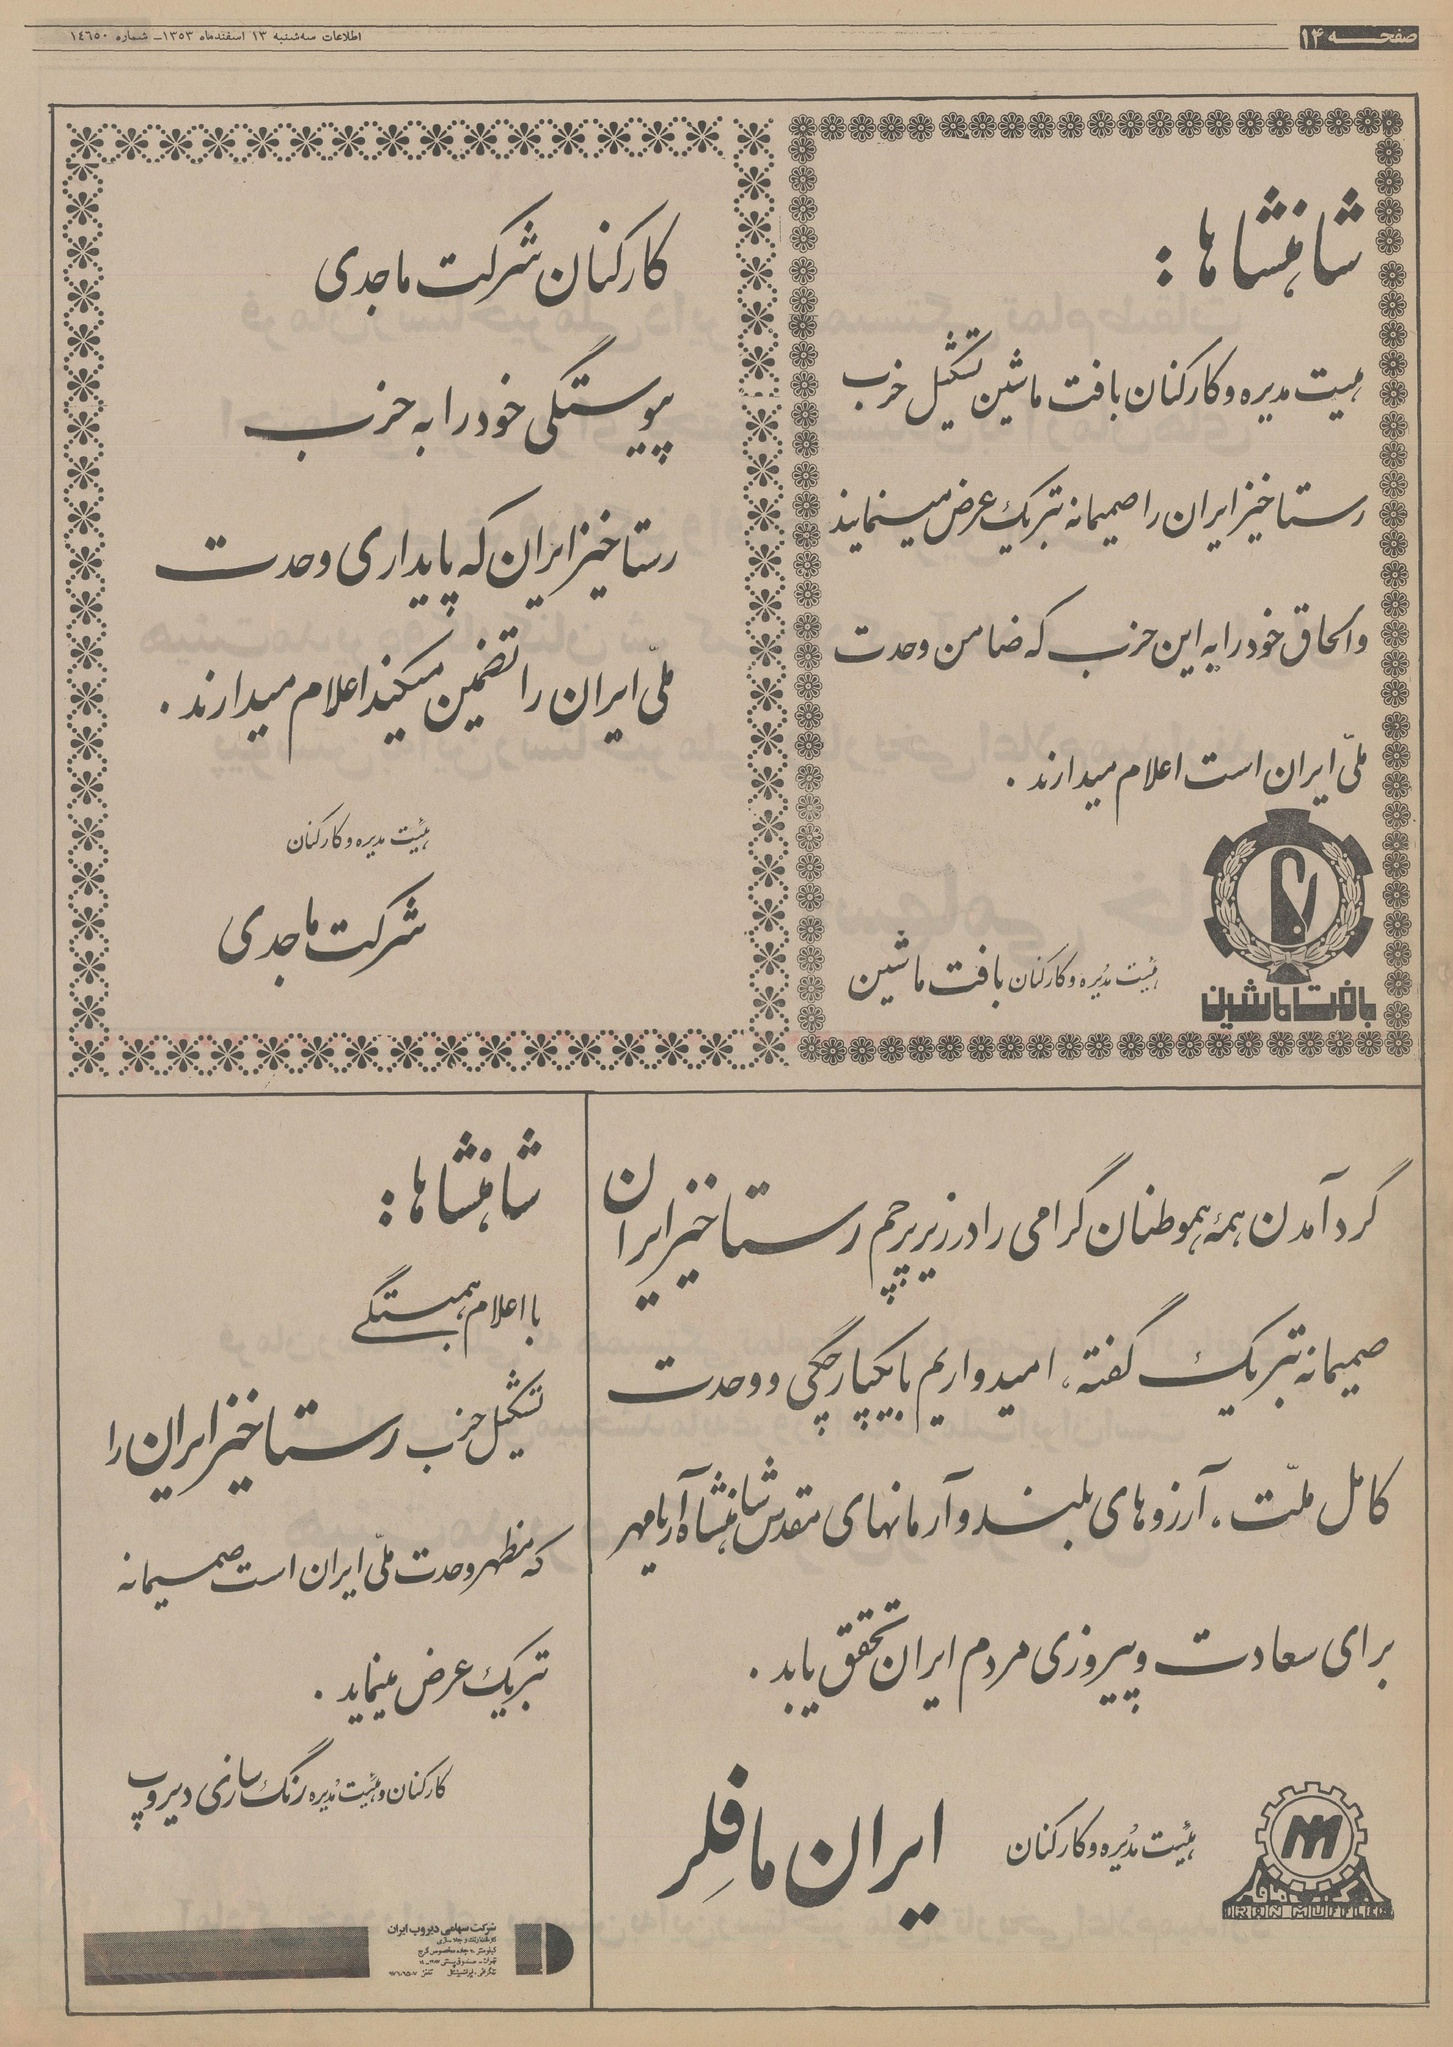 صفحه ۱۴
اطلاعات سه‌شنبه ۱۳ اسفندماه ۱۳۵۳ـ شماره ۱٤٦٥٠
شاهنشاها :
هیئت مدیره و کارکنان بافت ماشین تشکیل حزب
رستاخیز ایران را صمیمانه تبریک عرض مینمایند
و الحاق خود را به این حزب که ضامن وحدت
ملّی ایران است اعلام میدارند .
هیئت مدیره و کارکنان بافت ماشین
بافت ماشین
کارکنان شرکت ماجدی
پیوستگی خود را به حزب
رستاخیز ایران که پایداری وحدت
ملّی ایران را تضمین میکند اعلام میدارند .
هیئت مدیره و کارکنان
شرکت ماجدی
گرد آمدن همهٔ هموطنان گرامی را در زیر پرچم رستاخیز ایران
صمیمانه تبریک گفته، امیدواریم با یکپارچگی و وحدت
کامل ملّت، آرزوهای بلند و آرمانهای مقدس شاهنشاه آریامهر
برای سعادت و پیروزی مردم ایران تحقق یابد .
هیئت مدیره و کارکنان
ایران مافلر
IRAN MUFFLER
شاهنشاها :
با اعلام همبستگی
تشکیل حزب رستاخیز ایران را
که مظهر وحدت ملّی ایران است صمیمانه
تبریک عرض مینماید .
کارکنان و هیئت مدیره رنگ سازی دیروپ
شرکت سهامی دیروپ ایران